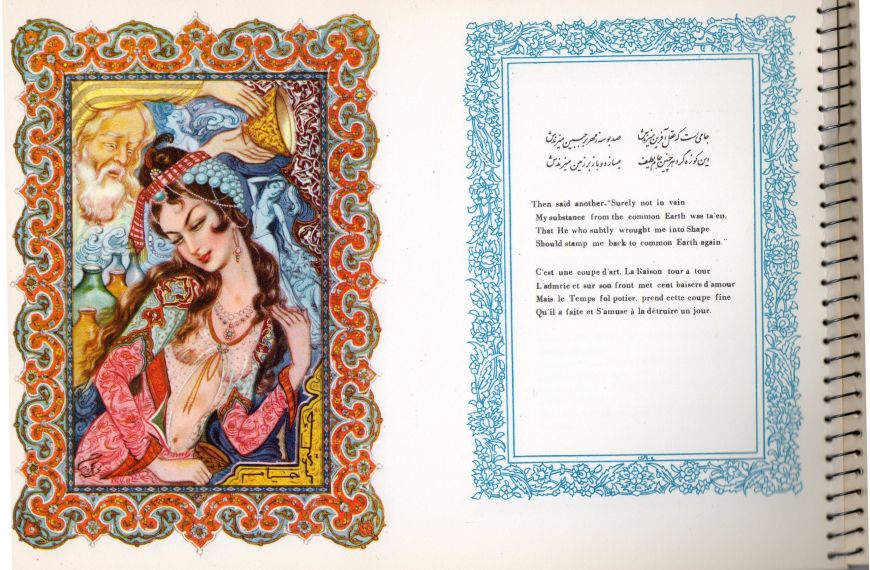 جامی است که عقل آفرین میزندش صد بوسه ز مهر بر جبین میزندش
این کوزه گر دهر چنین جام لطیف میسازد و باز بر زمین میزندش
Then said another-"Surely not in vain
My substance from the common Earth was ta'en,
That He who subtly wrought me into Shape
Should stamp me back to common Earth again."
C'est une coupe d'art. La Raison tour à tour
L'admrie et sur son front met cent baisers d'amour
Mais le Temps fol potier, prend cette coupe fine
Qu'il a faite et S'amuse à la détruire un jour.